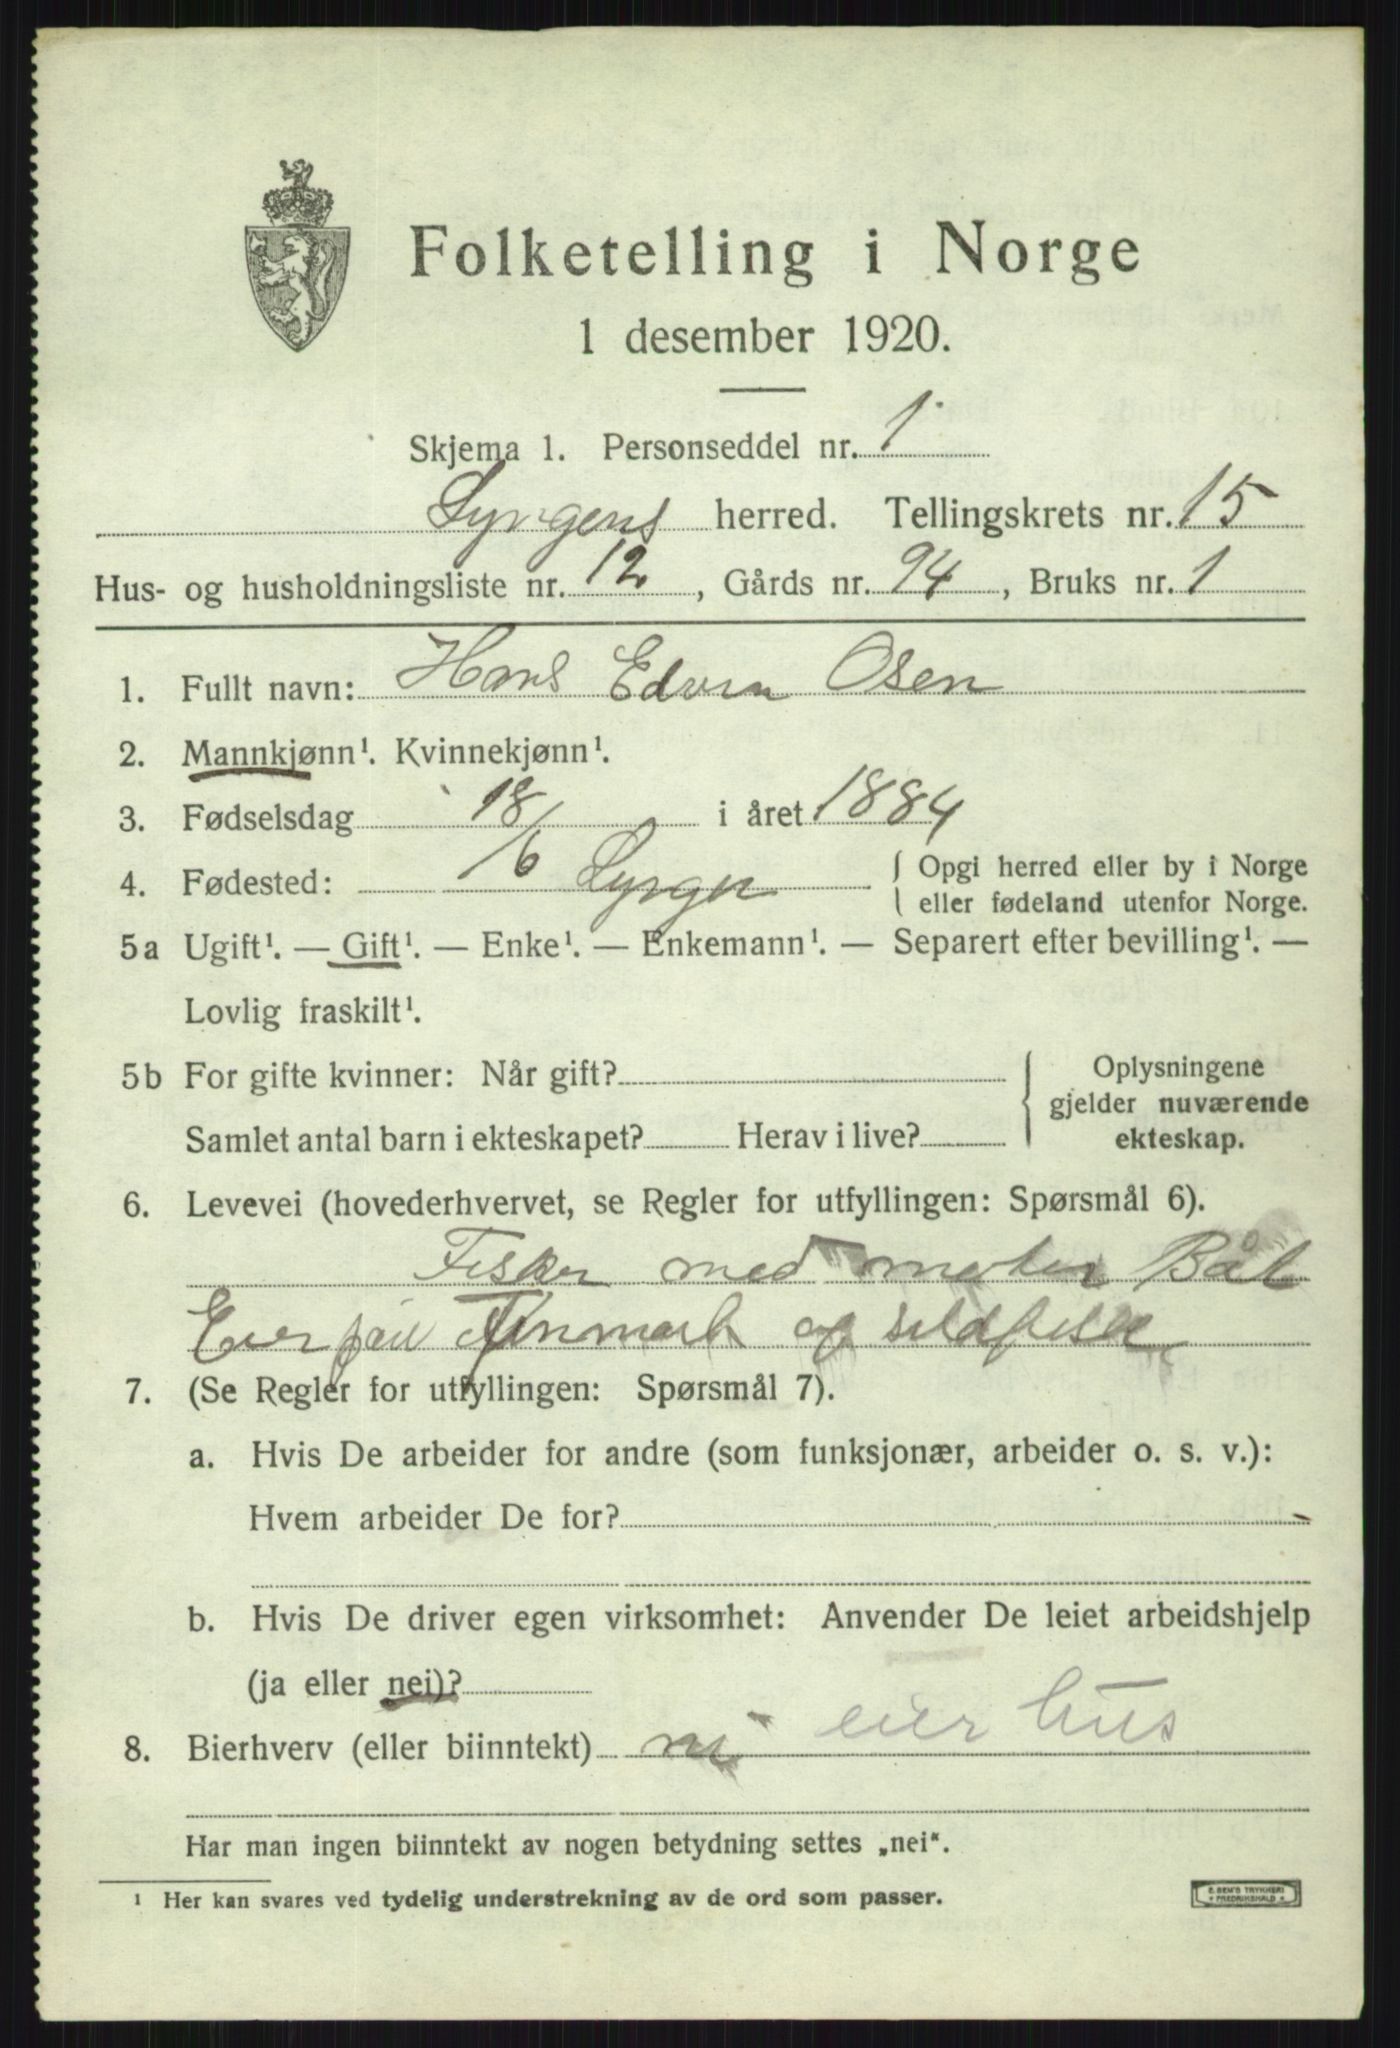 Folketelling i Norge
1 desember 1920.
Skjema 1. Personseddel nr. 1
Lyngens herred. Tellingskrets nr. 15
Hus- og husholdningsliste nr. 12, Gårds nr. 94, Bruks nr. 1
1. Fullt navn: Hans Edvin Osen
2. Mannkjønn¹. Kvinnekjønn¹.
3. Fødselsdag 18/6 i året 1884
4. Fødested: Lyngen { Opgi herred eller by i Norge
eller fødeland utenfor Norge.
5a Ugift¹. — Gift¹. — Enke¹. — Enkemann¹. — Separert efter bevilling¹. —
Lovlig fraskilt¹.
5b For gifte kvinner: Når gift? { Oplysningene
gjelder nuværende
Samlet antal barn i ekteskapet? Herav i live? ekteskap.
6. Levevei (hovederhvervet, se Regler for utfyllingen: Spørsmål 6).
Fisker med motor Båt
Finmark og sildfiske
7. (Se Regler for utfyllingen: Spørsmål 7).
a. Hvis De arbeider for andre (som funksjonær, arbeider o. s. v.):
Hvem arbeider De for?
b. Hvis De driver egen virksomhet: Anvender De leiet arbeidshjelp
(ja eller nei)?
8. Bierhverv (eller biinntekt) eier hus
Har man ingen biinntekt av nogen betydning settes „nei".
¹ Her kan svares ved tydelig understrekning av de ord som passer.